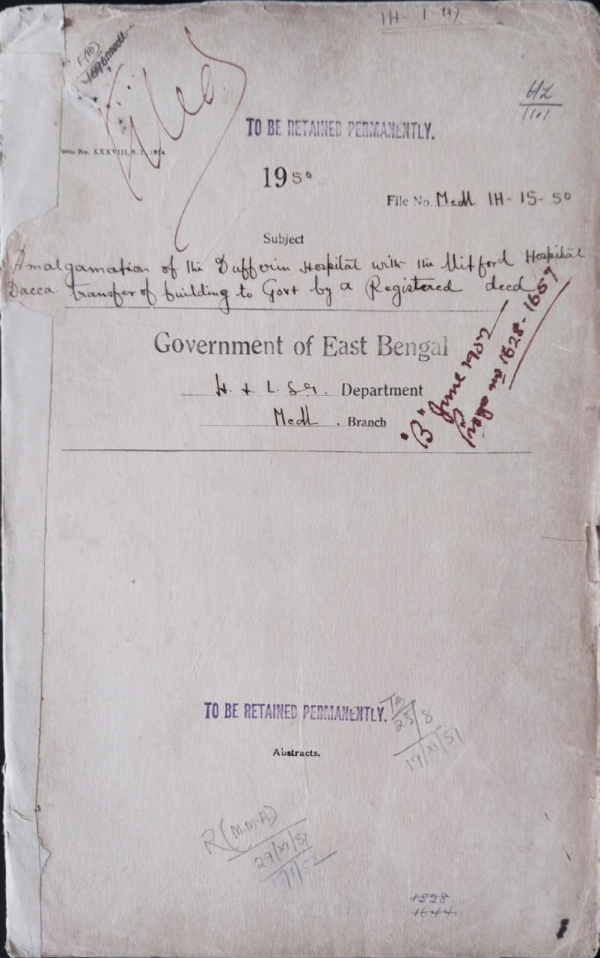 IH-1-117
Filed
TO BE RETAINED PERMANENTLY.
1950
File No. Medl IH-15-50
Subject
Amalgamation of the Dufferin Hospital with the Mitford Hospital
Dacca transfer of building to Govt by a Registered deed
Government of East Bengal
H. & L. S. G. Department
Medl. Branch
"B" June 1952
1628-1657
TO BE RETAINED PERMANENTLY.
25/8
19/XI/51
Abstracts.
R (M.M.A)
29/XI/51
1528
1644